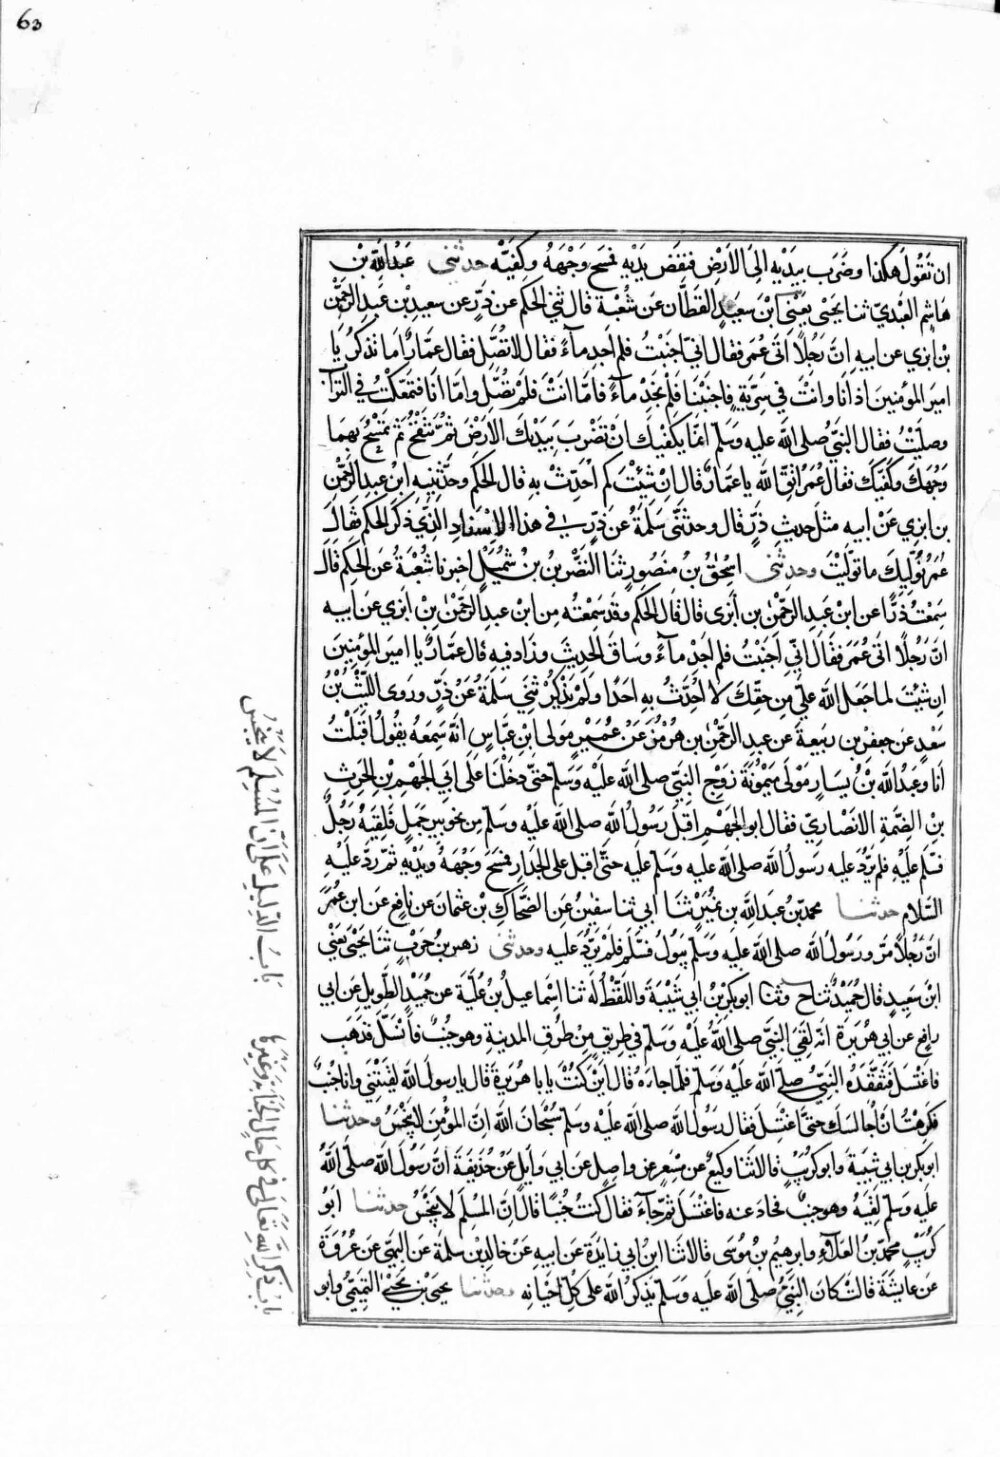 63
ان تقول هكذا وضرب بيديه الى الارض فنفض يديه فمسح وجهه وكفيه حدثني عبد الله بن
هاشم العبدي ثنا يحيى يعني ابن سعيد القطان عن شعبة قال ثني الحكم عن ذر عن سعيد بن عبد الرحمن
بن ابزي عن ابيه ان رجلا اتى عمر فقال اني اجنبت فلم اجد ماء فقال لا تصل فقال عمار اما تذكر يا
امير المؤمنين اذ انا وانت في سرية فاجنبنا فلم نجد ماء فاما انت فلم تصل واما انا فتمعكت في التراب
وصليت فقال النبي صلى الله عليه وسلم انما يكفيك ان تضرب بيديك الارض ثم تنفخ ثم تمسح بهما
وجهك وكفيك فقال عمر اتق الله يا عمار قال ان شئت لم احدث به قال الحكم وحدثنيه ابن عبد الرحمن
بن ابزي عن ابيه مثل حديث ذر قال وحدثني سلمة عن ذر في هذا الاسناد الذي ذكر الحكم فقال
عمر نوليك ما توليت وحدثني اسحق بن منصور ثنا النضر بن شميل اخبرنا شعبة عن الحكم قال
سمعت ذرا عن ابن عبد الرحمن بن ابزى قال قال الحكم وقد سمعته من ابن عبد الرحمن بن ابزي عن ابيه
ان رجلا اتى عمر فقال اني اجنبت فلم اجد ماء وساق الحديث وزاد فيه قال عمار يا امير المؤمنين
ان شئت لما جعل الله علي من حقك لا احدث به احدا ولم يذكر ثني سلمة عن ذر وروى الليث بن
سعد عن جعفر بن ربيعة عن عبد الرحمن بن هرمز عن عمير مولى ابن عباس انه سمعه يقول اقبلت
انا وعبد الله بن يسار مولى ميمونة زوج النبي صلى الله عليه وسلم حتى دخلنا على ابي الجهم بن الحرث
بن الصمة الانصاري فقال ابو الجهم اقبل رسول الله صلى الله عليه وسلم من نحو بير جمل فلقيه رجل
فسلم عليه فلم يرد عليه رسول الله صلى الله عليه وسلم عليه حتى اقبل على الجدار فمسح وجهه ويديه ثم رد عليه
السلام حدثنا محمد بن عبد الله بن نمير ثنا ابي ثنا سفين عن الضحاك بن عثمان عن نافع عن ابن عمر
ان رجلا مر ورسول الله صلى الله عليه وسلم يبول فسلم فلم يرد عليه وحدثني زهير بن حرب ثنا يحيى يعني
ابن سعيد قال حميد ثنا ح وثنا ابو بكر بن ابي شيبة واللفظ له ثنا اسماعيل بن علية عن حميد الطويل عن ابي
رافع عن ابي هريرة انه لقي النبي صلى الله عليه وسلم في طريق من طرق المدينة وهو جنب فانسل فذهب
فاغتسل فتفقده النبي صلى الله عليه وسلم فلما جاءه قال اين كنت يابا هريرة قال يا رسول الله لقيتني وانا جنب
فكرهت ان اجالسك حتى اغتسل فقال رسول الله صلى الله عليه وسلم سبحان الله ان المؤمن لا ينجس وحدثنا
ابو بكر بن ابي شيبة وابو كريب قالا ثنا وكيع عن مسعر عن واصل عن ابي وايل عن حذيفة ان رسول الله صلى الله
عليه وسلم لقيه وهو جنب فحاد عنه فاغتسل ثم جاء فقال كنت جنبا قال ان المسلم لا ينجس حدثنا ابو
كريب محمد بن العلاء وابرهيم بن موسى قالا ثنا ابن ابي زايدة عن ابيه عن خالد بن سلمة عن البهي عن عروة
عن عايشة قالت كان النبي صلى الله عليه وسلم يذكر الله على كل احيانه وحدثنا يحيى بن يحيى التميمي وابو
باب الدليل على ان المسلم لا ينجس
باب ذكر الله تعالى في كل حال الجنابة وغيرها